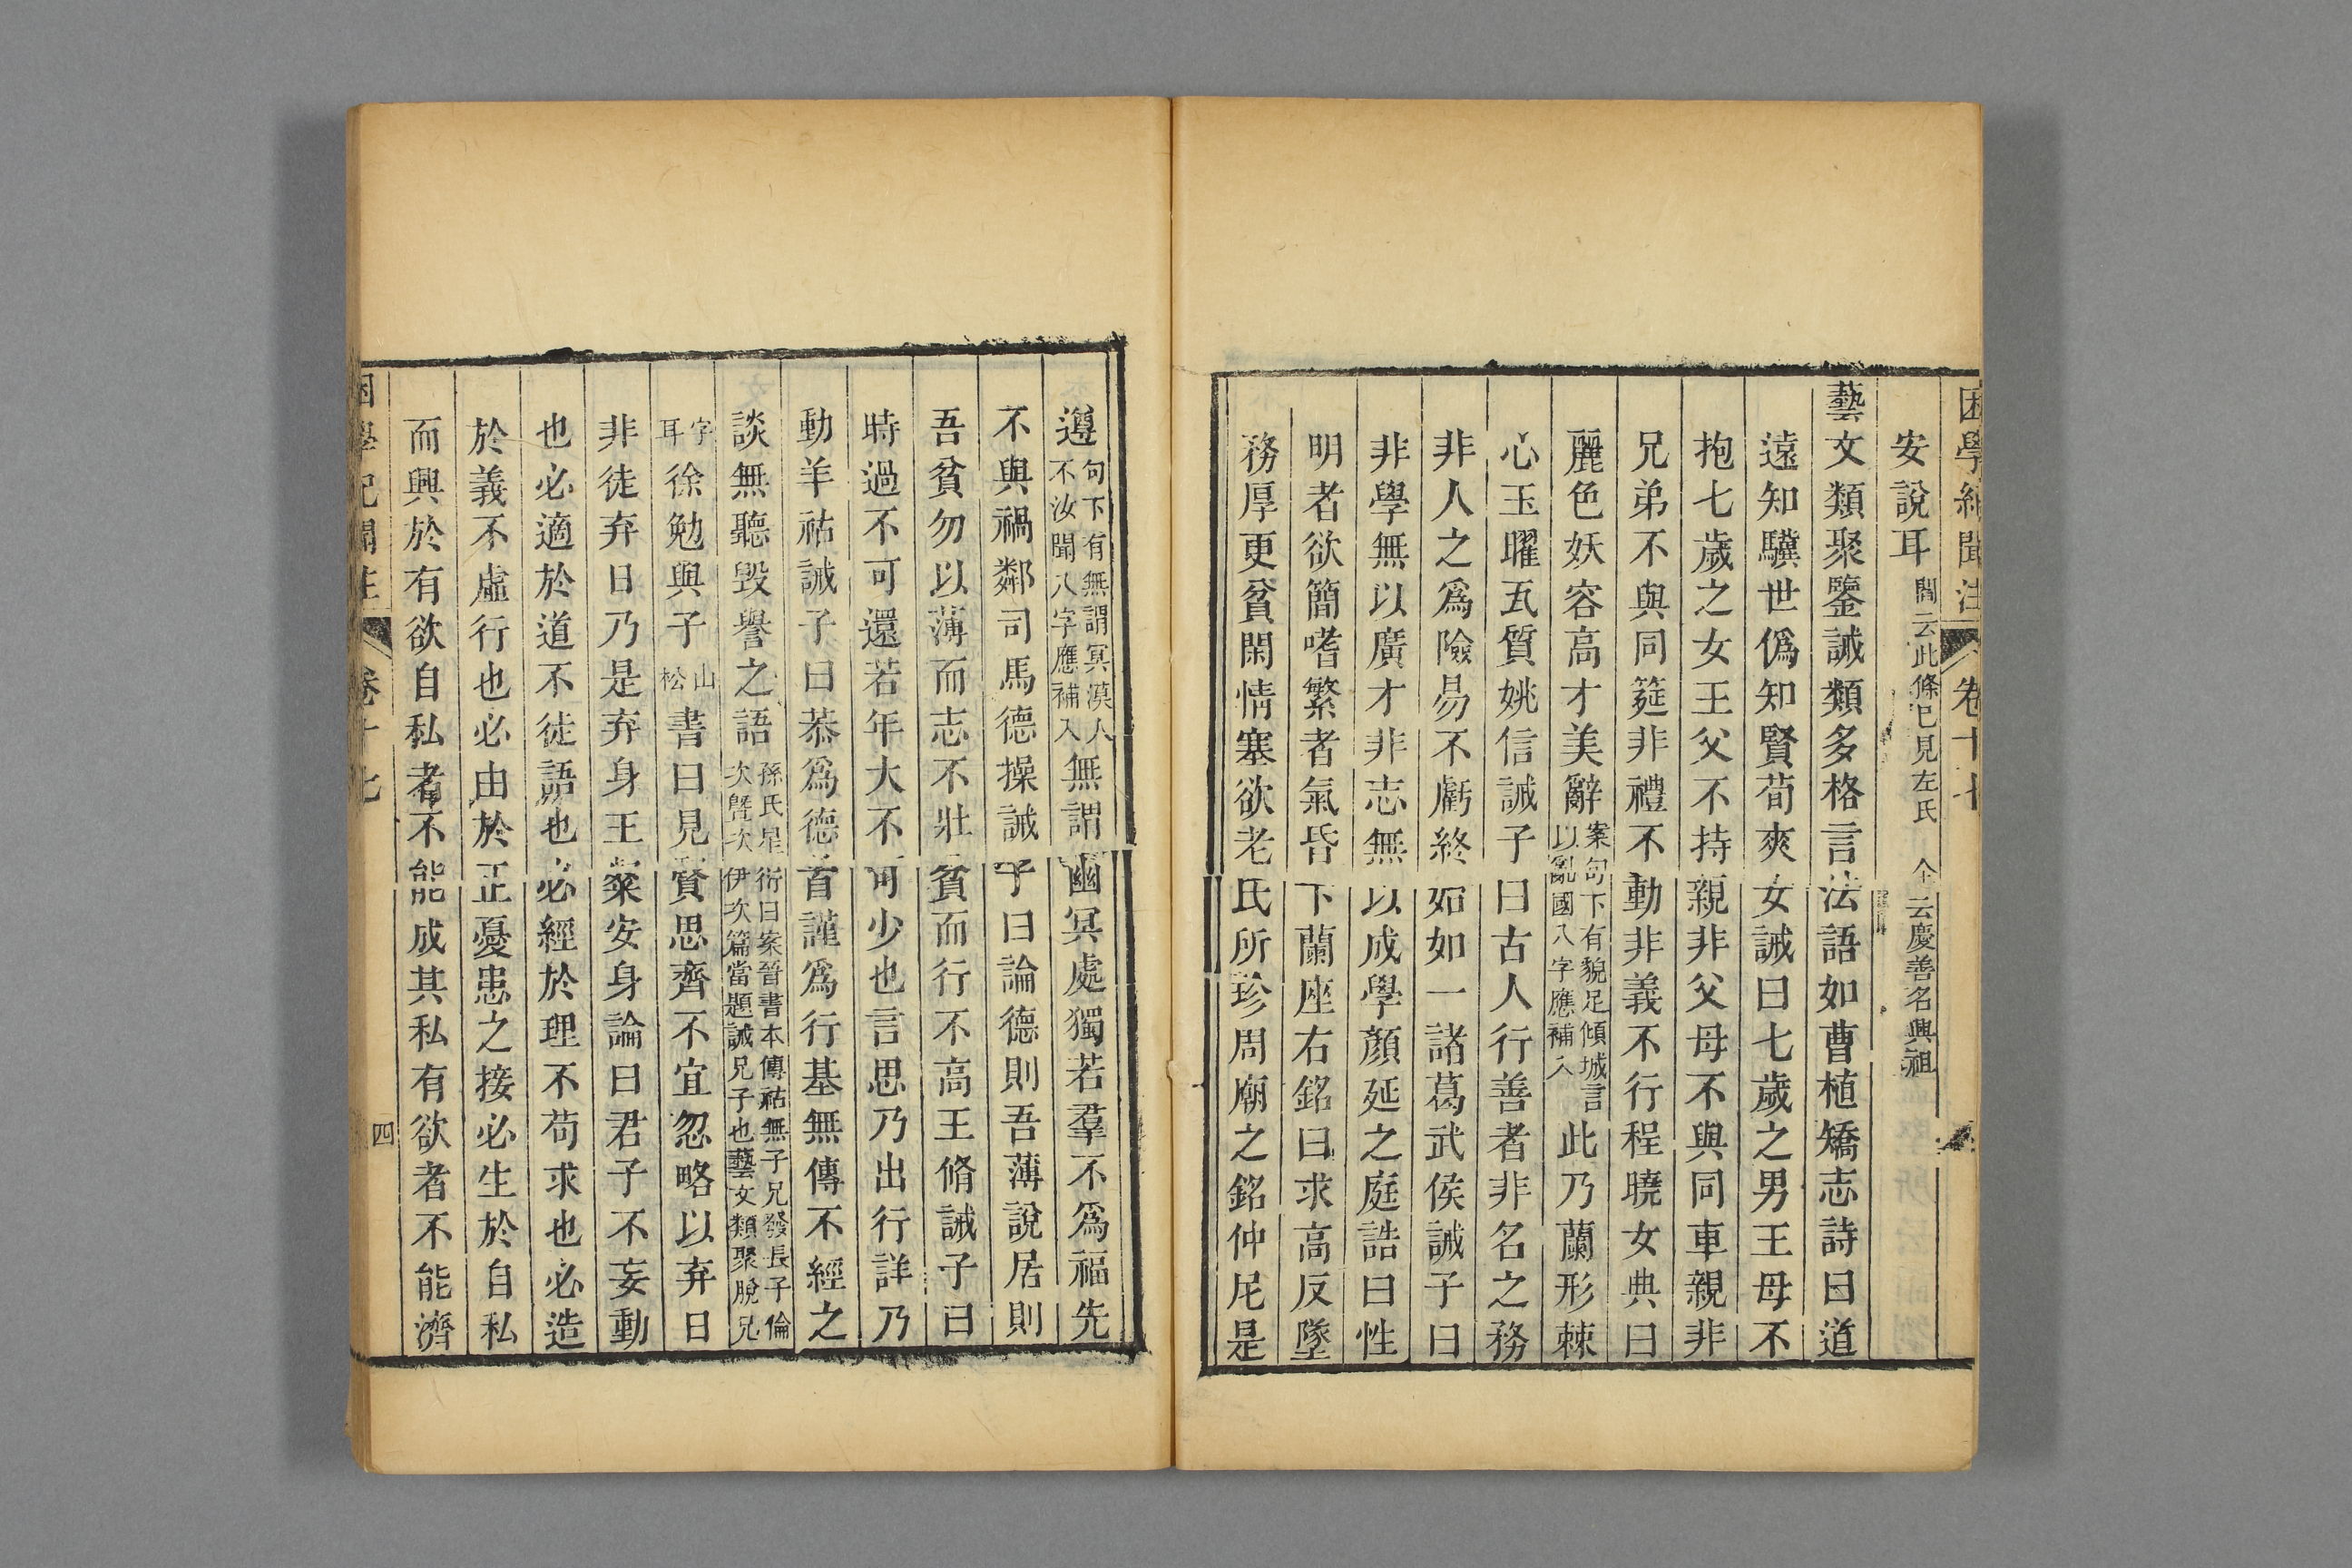 困學紀聞注
卷十七
安說耳閻云此條已見左氏 全云慶善名興祖
藝文類聚鑒誡類多格言法語如曹植矯志詩曰道
遠知驥世偽知賢荀爽女誡曰七歲之男王母不
抱七歲之女王父不持親非父母不與同車親非
兄弟不與同筵非禮不動非義不行程曉女典曰
麗色妖容高才美辭案句下有貌足傾城言以亂國八字應補入此乃蘭形棘
心玉曜瓦質姚信誡子曰古人行善者非名之務
非人之爲險易不虧終如如一諸葛武侯誡子曰
非學無以廣才非志無以成學顏延之庭誥曰性
明者欲簡嗜繁者氣昏下蘭座右銘曰求高反墜
務厚更貧閑情塞欲老氏所珍周廟之銘仲尼是
遵句下有無謂冥漠人不汝聞八字應補入無謂幽冥處獨若羣不爲福先
不與禍鄰司馬德操誡子曰論德則吾薄說居則
吾貧勿以薄而志不壯貧而行不高王脩誡子曰
時過不可還若年大不可少也言思乃出行詳乃
動羊祜誡子曰恭爲德首謹爲行基無傳不經之
談無聽毀譽之語孫氏星衍曰案晉書本傳祜無子兄發長子倫次曁次伊次篇當題誡兄子也藝文類聚脫兄
字耳徐勉與子山松書曰見賢思齊不宜忽略以弃日
非徒弃日乃是弃身王粲安身論曰君子不妄動
也必適於道不徒語也必經於理不苟求也必造
於義不虛行也必由於正憂患之接必生於自私
而興於有欲自私者不能成其私有欲者不能濟
困學紀聞注
卷十七
四